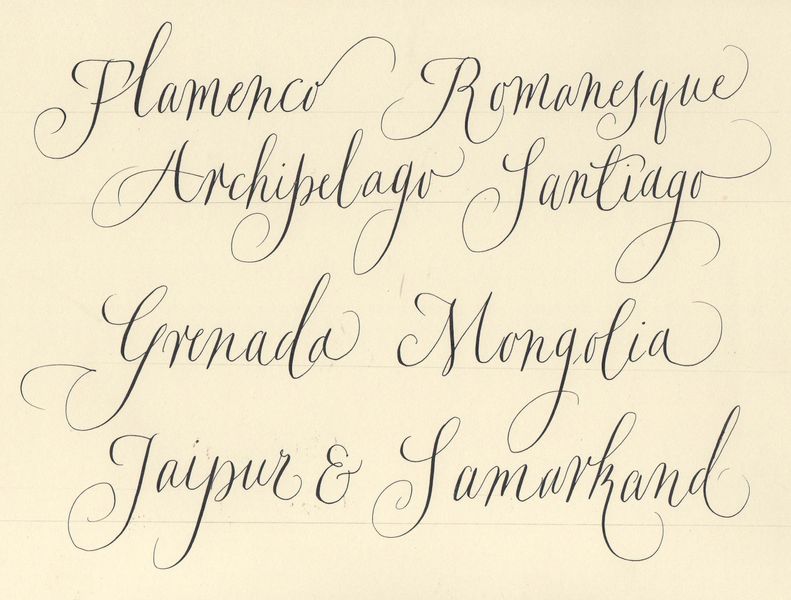 Flamenco Romanesque
Archipelago Santiago
Grenada Mongolia
Jaipur & Samarkand